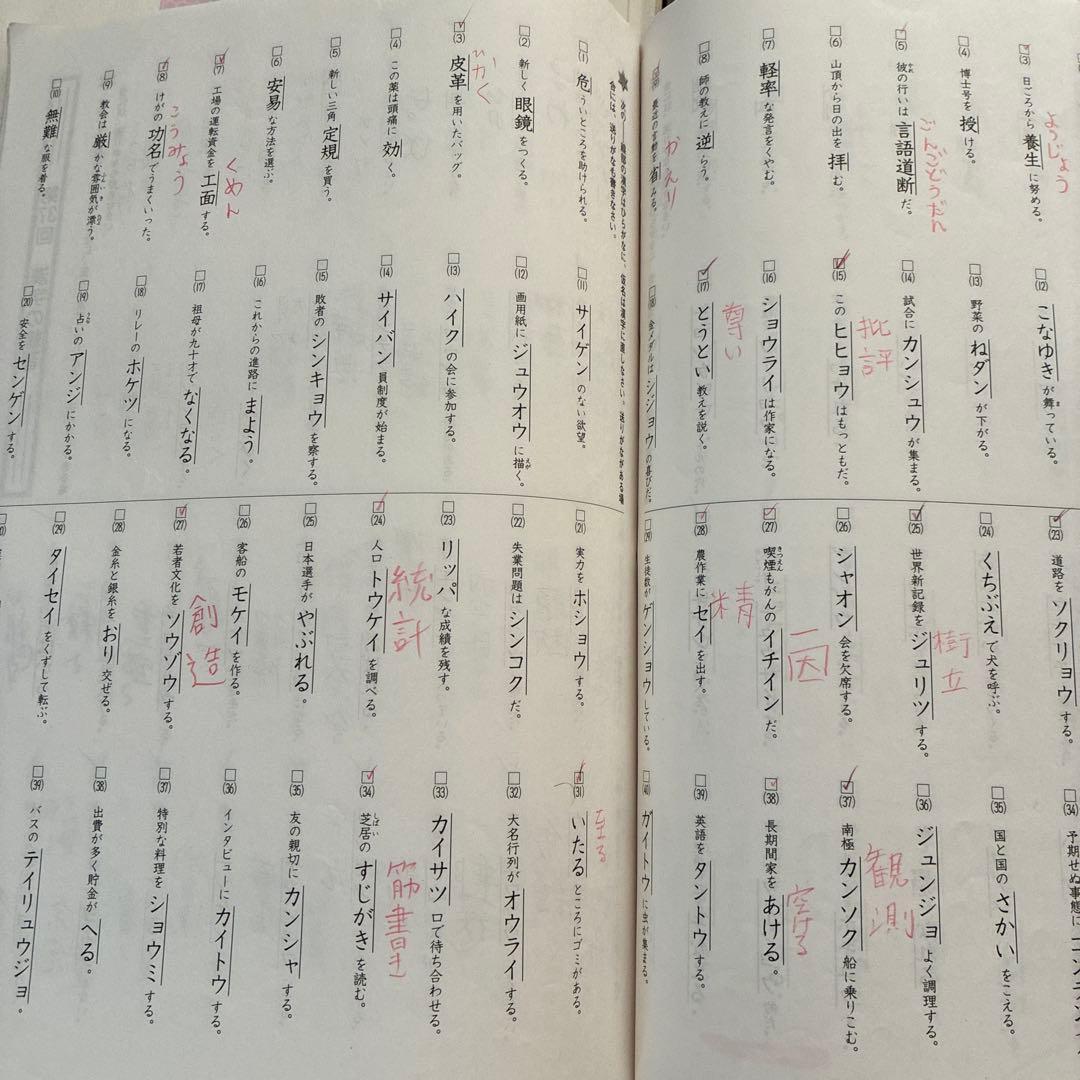 (3) 日ごろから養生に努める。
ようじょう
(4) 博士号を授ける。
(5) 彼の行いは言語道断だ。
かれ
ごんごどうだん
(6) 山頂から日の出を拝む。
(7) 軽率な発言をくやむ。
(8) 師の教えに逆らう。
最近の言動を省みる。
かえり
(12) こなゆきが舞っている。
ま
(13) 野菜のねダンが下がる。
(14) 試合にカンシュウが集まる。
(15) このヒヒョウはもっともだ。
批評
(16) ショウライは作家になる。
(17) とうとい教えを説く。
尊い
(18) 金メダルはシジョウの喜びだ。
(23) 道路をソクリョウする。
(24) くちぶえで犬を呼ぶ。
(25) 世界新記録をジュリツする。
樹立
(26) シャオン会を欠席する。
(27) 喫煙もがんのイチインだ。
きつえん
一因
(28) 農作業にセイを出す。
精
(29) 生徒数がゲンショウしている。
(34) 予期せぬ事態に
(35) 国と国のさかいをこえる。
(36) ジュンジョよく調理する。
(37) 南極カンソク船に乗りこむ。
観測
(38) 長期間家をあける。
空ける
(39) 英語をタントウする。
(40) ガイトウに虫が集まる。
次の――線部の漢字はひらがなに、仮名は漢字に直しなさい。送りがながある場
合には、送りがなも書きなさい。
(1) 危ういところを助けられる。
(2) 新しく眼鏡をつくる。
(3) 皮革を用いたバッグ。
ひかく
(4) この薬は頭痛に効く。
(5) 新しい三角定規を買う。
(6) 安易な方法を選ぶ。
(7) 工場の運転資金を工面する。
くめん
(8) けがの功名でうまくいった。
こうみょう
(9) 教会は厳かな雰囲気が漂う。
ふんいき
ただよ
(10) 無難な服を着る。
(11) サイゲンのない欲望。
(12) 画用紙にジュウオウに描く。
えが
(13) ハイクの会に参加する。
(14) サイバン員制度が始まる。
(15) 敗者のシンキョウを察する。
(16) これからの進路にまよう。
(17) 祖母が九十才でなくなる。
(18) リレーのホケツになる。
(19) 占いのアンジにかかる。
うらな
(20) 安全をセンゲンする。
(21) 実力をホショウする。
(22) 失業問題はシンコクだ。
(23) リッパな成績を残す。
(24) 人口トウケイを調べる。
統計
(25) 日本選手がやぶれる。
(26) 客船のモケイを作る。
(27) 若者文化をソウゾウする。
創造
(28) 金糸と銀糸をおり交ぜる。
(29) タイセイをくずして転ぶ。
(31) いたるところにゴミがある。
至る
(32) 大名行列がオウライする。
(33) カイサツ口で待ち合わせる。
(34) 芝居のすじがきを読む。
しばい
筋書き
(35) 友の親切にカンシャする。
(36) インタビューにカイトウする。
(37) 特別な料理をショウミする。
(38) 出費が多く貯金がへる。
(39) バスのテイリュウジョ。